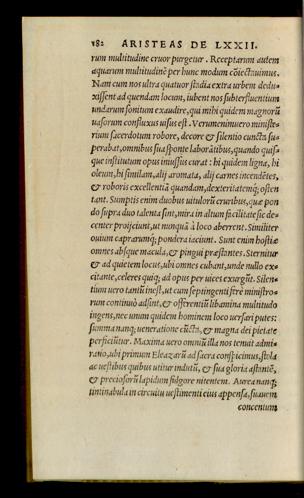 182 ARISTEAS DE LXXII.
rum multitudine cruor purgetur. Receptarum autem
aquarum multitudinē per hunc modum cōiectauimus.
Nam cum nos ultra quatuor stadia extra urbem dedu-
xissent ad quendam locum, iubent nos subterfluentium
undarum sonitum exaudire, qui mihi quidem magnorū
uasorum confluxus uisus est. Verumenimuero ministe-
rium sacerdotum robore, decore & silentio cuncta su-
perabat, omnibus sua sponte laborātibus, quando quis-
que institutum opus inuissus curat: hi quidem ligna, hi
oleum, hi similam, alij aromata, alij carnes incendētes,
& roboris excellentiā quandam, dexteritatemq; osten
tant. Sumptis enim duobus uitulorū cruribus, quæ pon
do supra duo talenta sint, mira in altum facilitate sic de-
center proijciunt, ut nunquā à loco aberrent. Similiter
ouium caprarumq; pondera iaciunt. Sunt enim hostiæ
omnes absque macula, & pingui præstantes. Sternitur
& ad quietem locus, ubi omnes cubant, unde nullo ex-
citante, celeres quiq; ad opus per uices exurgūt. Silen-
tium uero tantū inest, ut cum septingenti ferè ministro-
rum continuò adsint, & offerentiū libamina multitudo
ingens, nec unum quidem hominem loco uersari putes:
summa nanq; ueneratione cūcta, & magna dei pietate
perficiūtur. Maxima uero omniū illa nos tenuit admi-
ratio, ubi primum Eleazarū ad sacra conspicimus, stola
ac uestibus quibus utitur indutū, & sua gloria astantē,
& preciosorū lapidum fulgore nitentem. Aurea nanq;
tintinabula in circuitu uestimenti eius appensa, suauem
concentum